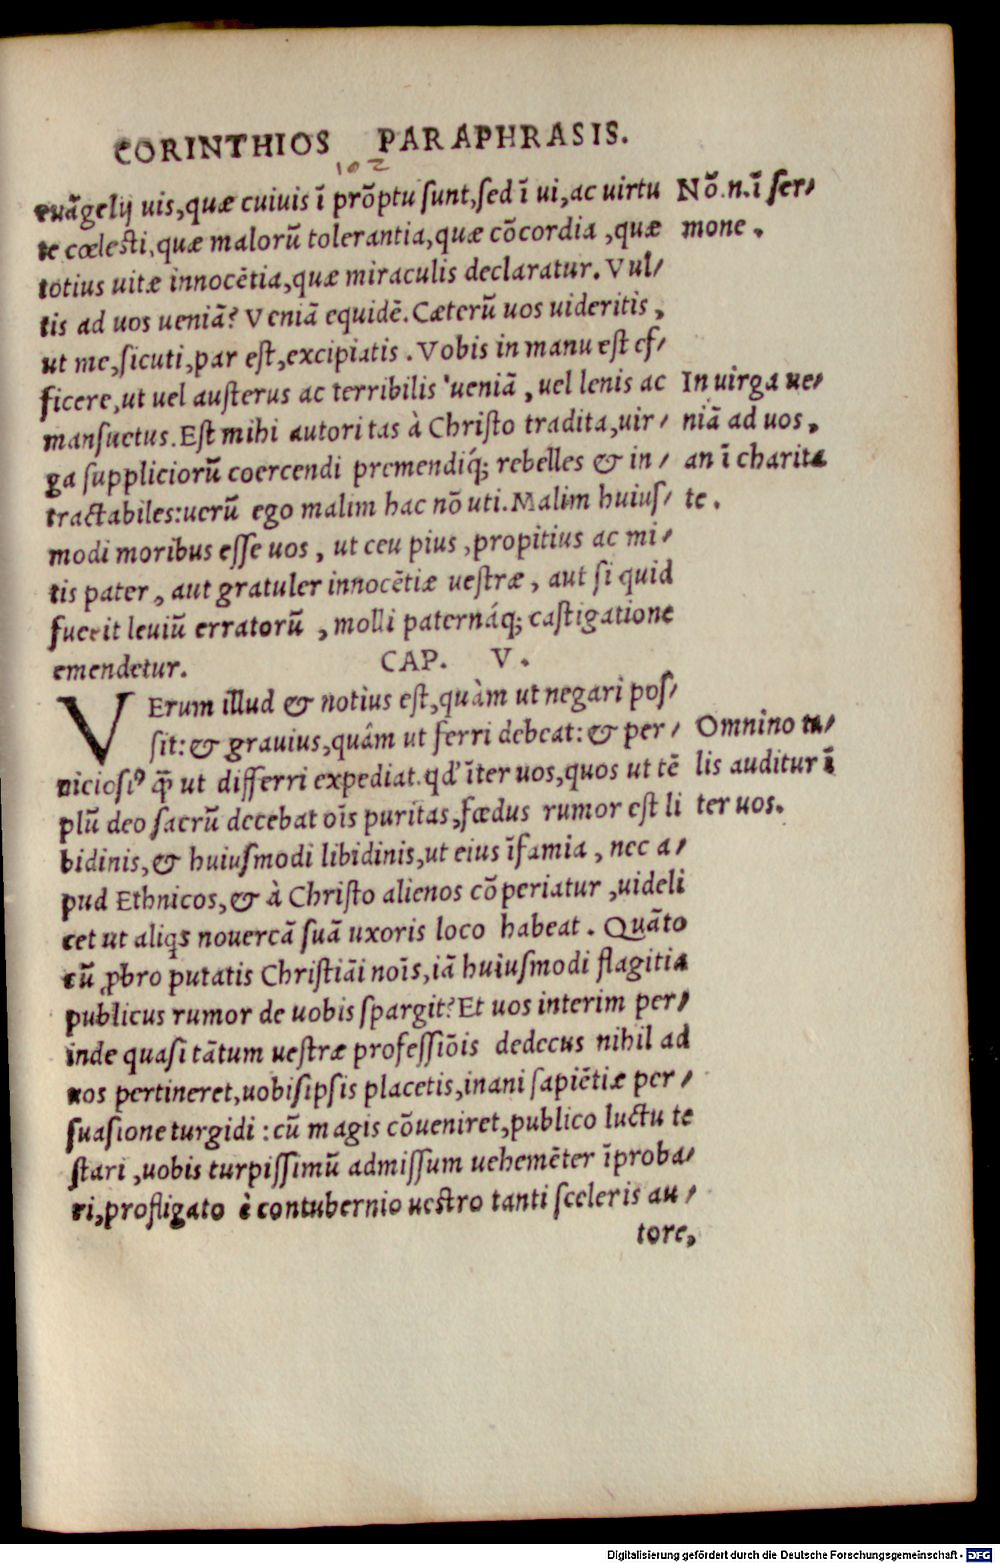 CORINTHIOS PARAPHRASIS.
102
euãgelij uis, quæ cuiuis ĩ prõptu sunt, sed ĩ ui, ac uirtu
te cœlesti, quæ malorũ tolerantia, quæ cõcordia, quæ
totius uitæ innocẽtia, quæ miraculis declaratur. Vul/
tis ad uos ueniã? Veniã equidẽ. Cæterũ uos uideritis,
ut me, sicuti, par est, excipiatis. Vobis in manu est ef/
ficere, ut uel austerus ac terribilis ueniã, uel lenis ac
mansuetus. Est mihi autoritas à Christo tradita, uir/
ga suppliciorũ coercendi premendiq́; rebelles & in/
tractabiles: uerũ ego malim hac nõ uti. Malim huius/
modi moribus esse uos, ut ceu pius, propitius ac mi/
tis pater, aut gratuler innocẽtiæ uestræ, aut si quid
fuerit leuiũ erratorũ, molli paternáq; castigatione
emendetur.
CAP. V.
VErum illud & notius est, quàm ut negari pos/
sit: & grauius, quâm ut ferri debeat: & per/
niciosiꝰ q̃ ut differri expediat. qd' ĩter uos, quos ut tẽ
plũ deo sacrũ decebat oĩs puritas, fœdus rumor est li
bidinis, & huiusmodi libidinis, ut eius ĩfamia, nec a/
pud Ethnicos, & à Christo alienos cõperiatur, uideli
cet ut aliqs nouercã suã uxoris loco habeat. Quãto
cũ ꝓbro putatis Christiãi noĩs, iã huiusmodi flagitia
publicus rumor de uobis spargit? Et uos interim per/
inde quasi tãtum uestræ professiõis dedecus nihil ad
uos pertineret, uobisipsis placetis, inani sapiẽtiæ per/
suasione turgidi: cũ magis cõueniret, publico luctu te
stari, uobis turpissimũ admissum uehemẽter ĩproba/
ri, profligato è contubernio uestro tanti sceleris au/
tore,
Nõ. n. ĩ ser/
mone.
In uirga ue/
niã ad uos,
an ĩ charita
te.
Omnino ta/
lis auditur ĩ
ter uos.
Digitalisierung gefördert durch die Deutsche Forschungsgemeinschaft - DFG